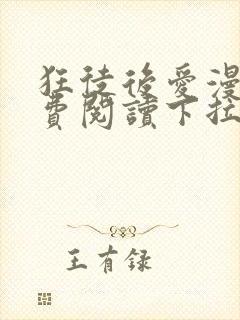 狂徒後愛漫
費閱讀下拉
王有録